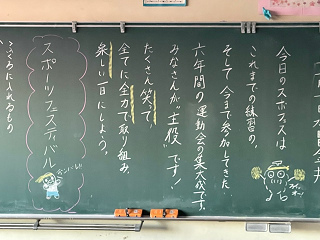 今日のスポフェスは
これまでの練習の、
そして今まで参加してきた
六年間の運動会の集大成です。
みなさんが"主役"です!
たくさん笑って、
全てに全力で取り組み、
楽しい一日にしよう。
スポーツフェスティバル